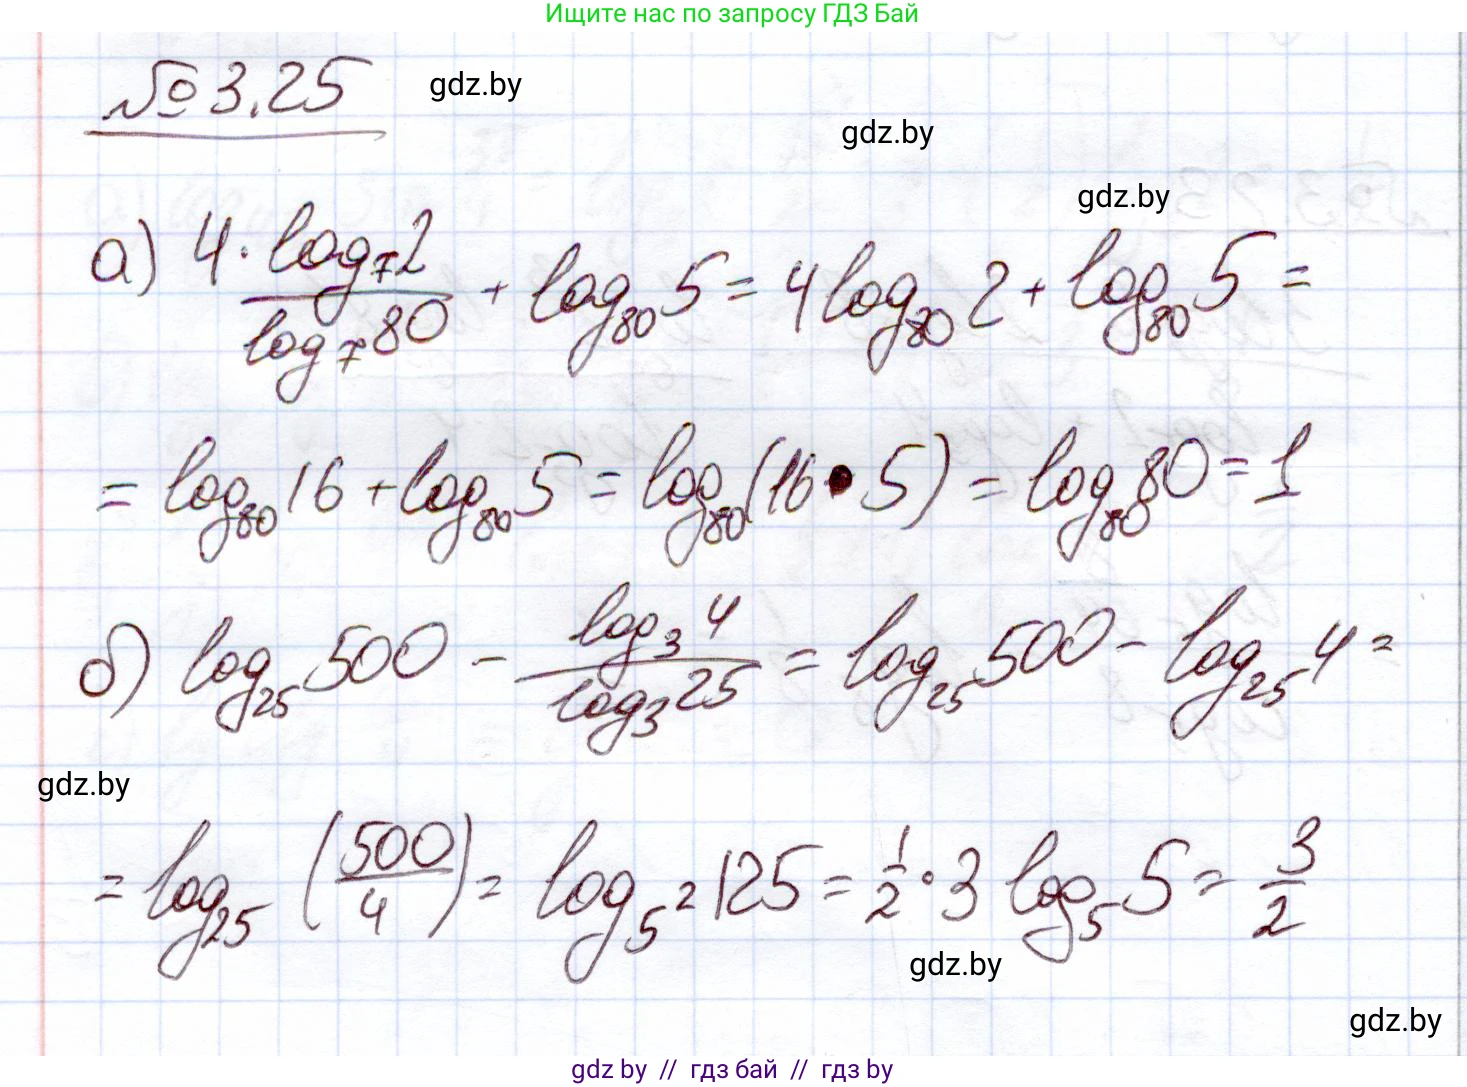 Ищите нас по запросу ГДЗ Бай
№ 3.25
gdz.by
gdz.by
gdz.by
а) 4 · log₇2 / log₇80 + log₈₀5 = 4log₈₀2 + log₈₀5 =
= log₈₀16 + log₈₀5 = log₈₀(16 • 5) = log₈₀80 = 1
б) log₂₅500 - log₃4 / log₃25 = log₂₅500 - log₂₅4 =
gdz.by
= log₂₅(500/4) = log₅²125 = 1/2 · 3 log₅5 = 3/2
gdz.by
gdz.by
gdz by // гдз бай // гдз by